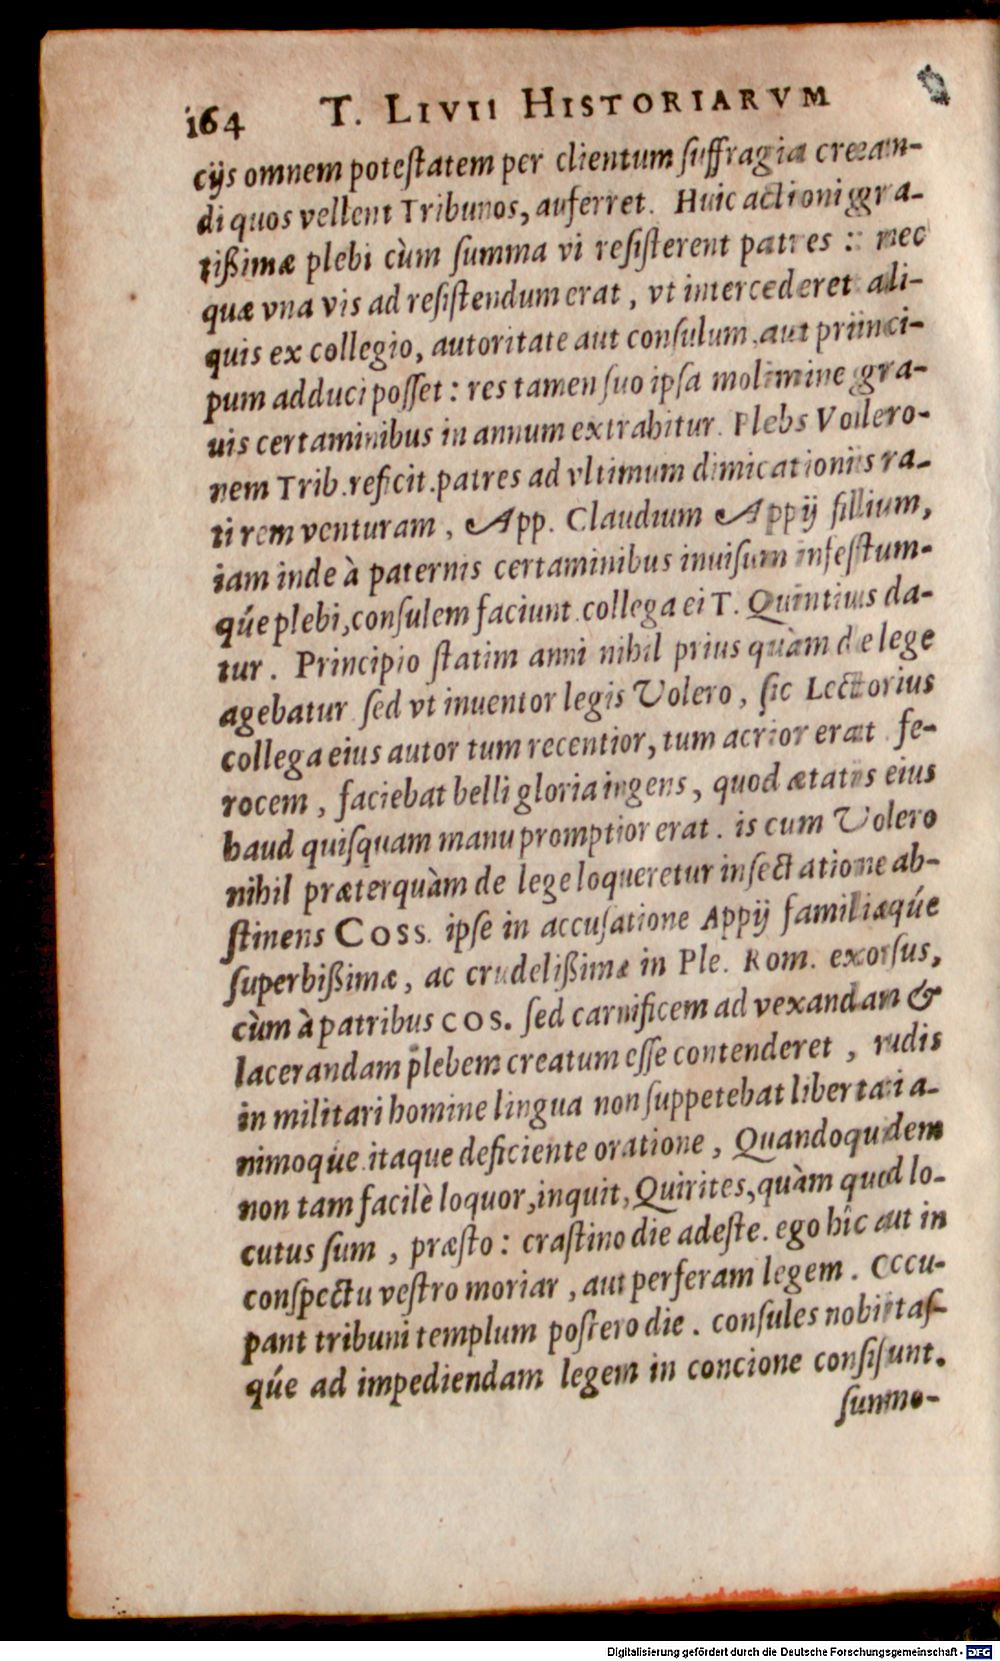 164 T. LIVII HISTORIARVM
cijs omnem potestatem per clientum suffragia crean-
di quos vellent Tribunos, auferret. Huic actioni gra-
tißimæ plebi cùm summa vi resisterent patres : nec
quæ vna vis ad resistendum erat, vt intercederet ali-
quis ex collegio, autoritate aut consulum aut princi-
pum adduci posset: res tamen suo ipsa molimine gra-
uis certaminibus in annum extrahitur. Plebs Volero-
nem Trib. reficit. patres ad vltimum dimicationis ra-
ti rem venturam, App. Claudium Appij filium,
iam inde à paternis certaminibus inuisum infestum-
qúe plebi, consulem faciunt. collega ei T. Quintius da-
tur. Principio statim anni nihil prius quàm de lege
agebatur sed vt inuentor legis Volero, sic Lectorius
collega eius autor tum recentior, tum acrior erat. fe-
rocem, faciebat belli gloria ingens, quod ætatis eius
haud quisquam manu promptior erat. is cum Volero
nihil præterquàm de lege loqueretur insectatione ab-
stinens COSS. ipse in accusatione Appij familiæqúe
superbißimæ, ac crudelißimæ in Ple. Rom. exorsus,
cùm à patribus COS. sed carnificem ad vexandam &
lacerandam plebem creatum esse contenderet, rudis
in militari homine lingua non suppetebat libertati a-
nimoqúe. itaque deficiente oratione, Quandoquidem
non tam facilè loquor, inquit, Quirites, quàm quod lo-
cutus sum, præsto: crastino die adeste. ego hîc aut in
conspectu vestro moriar, aut perferam legem. Occu-
pant tribuni templum postero die. consules nobilitas-
qúe ad impediendam legem in concione consisunt.
summo-
Digitalisierung gefördert durch die Deutsche Forschungsgemeinschaft - DFG